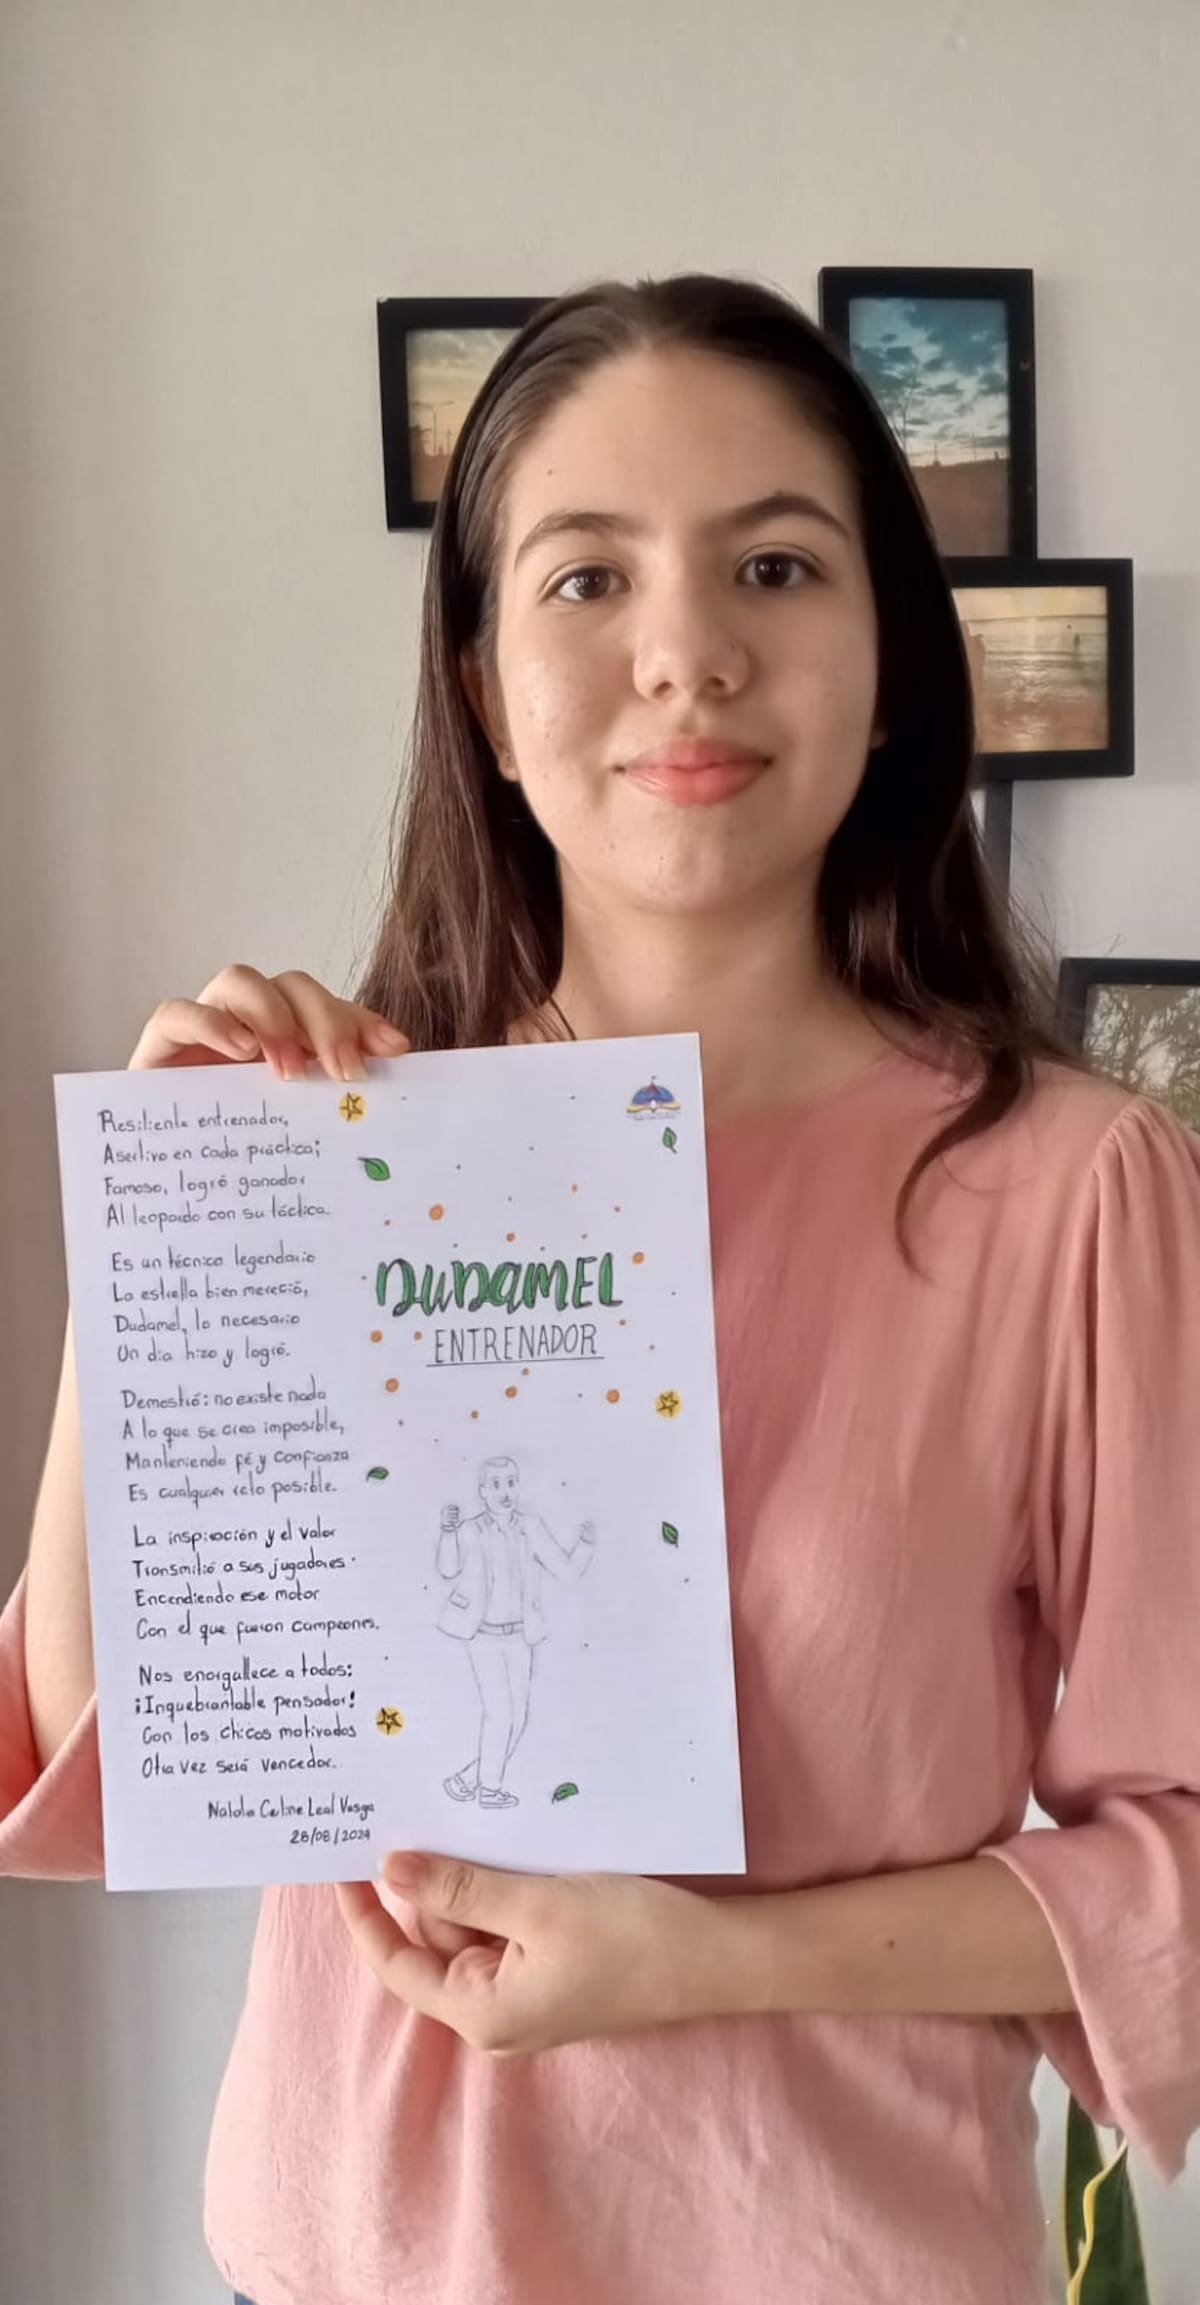 Resiliente entrenador,
Asertivo en cada práctica;
Famoso, logró ganador
Al leopardo con su táctica.
Es un técnico legendario
La estrella bien mereció,
Dudamel, lo necesario
Un día hizo y logró.
Demostró: no existe nada
A lo que se crea imposible,
Manteniendo fé y confianza
Es cualquier reto posible.
La inspiración y el valor
Transmitió a sus jugadores
Encendiendo ese motor
Con el que fueron campeones.
Nos enorgullece a todos:
¡Inquebrantable pensador!
Con los chicos motivados
Otra vez será vencedor.
Natalia Celine Leal Vesga
28/08/2024
DUDAMEL
ENTRENADOR